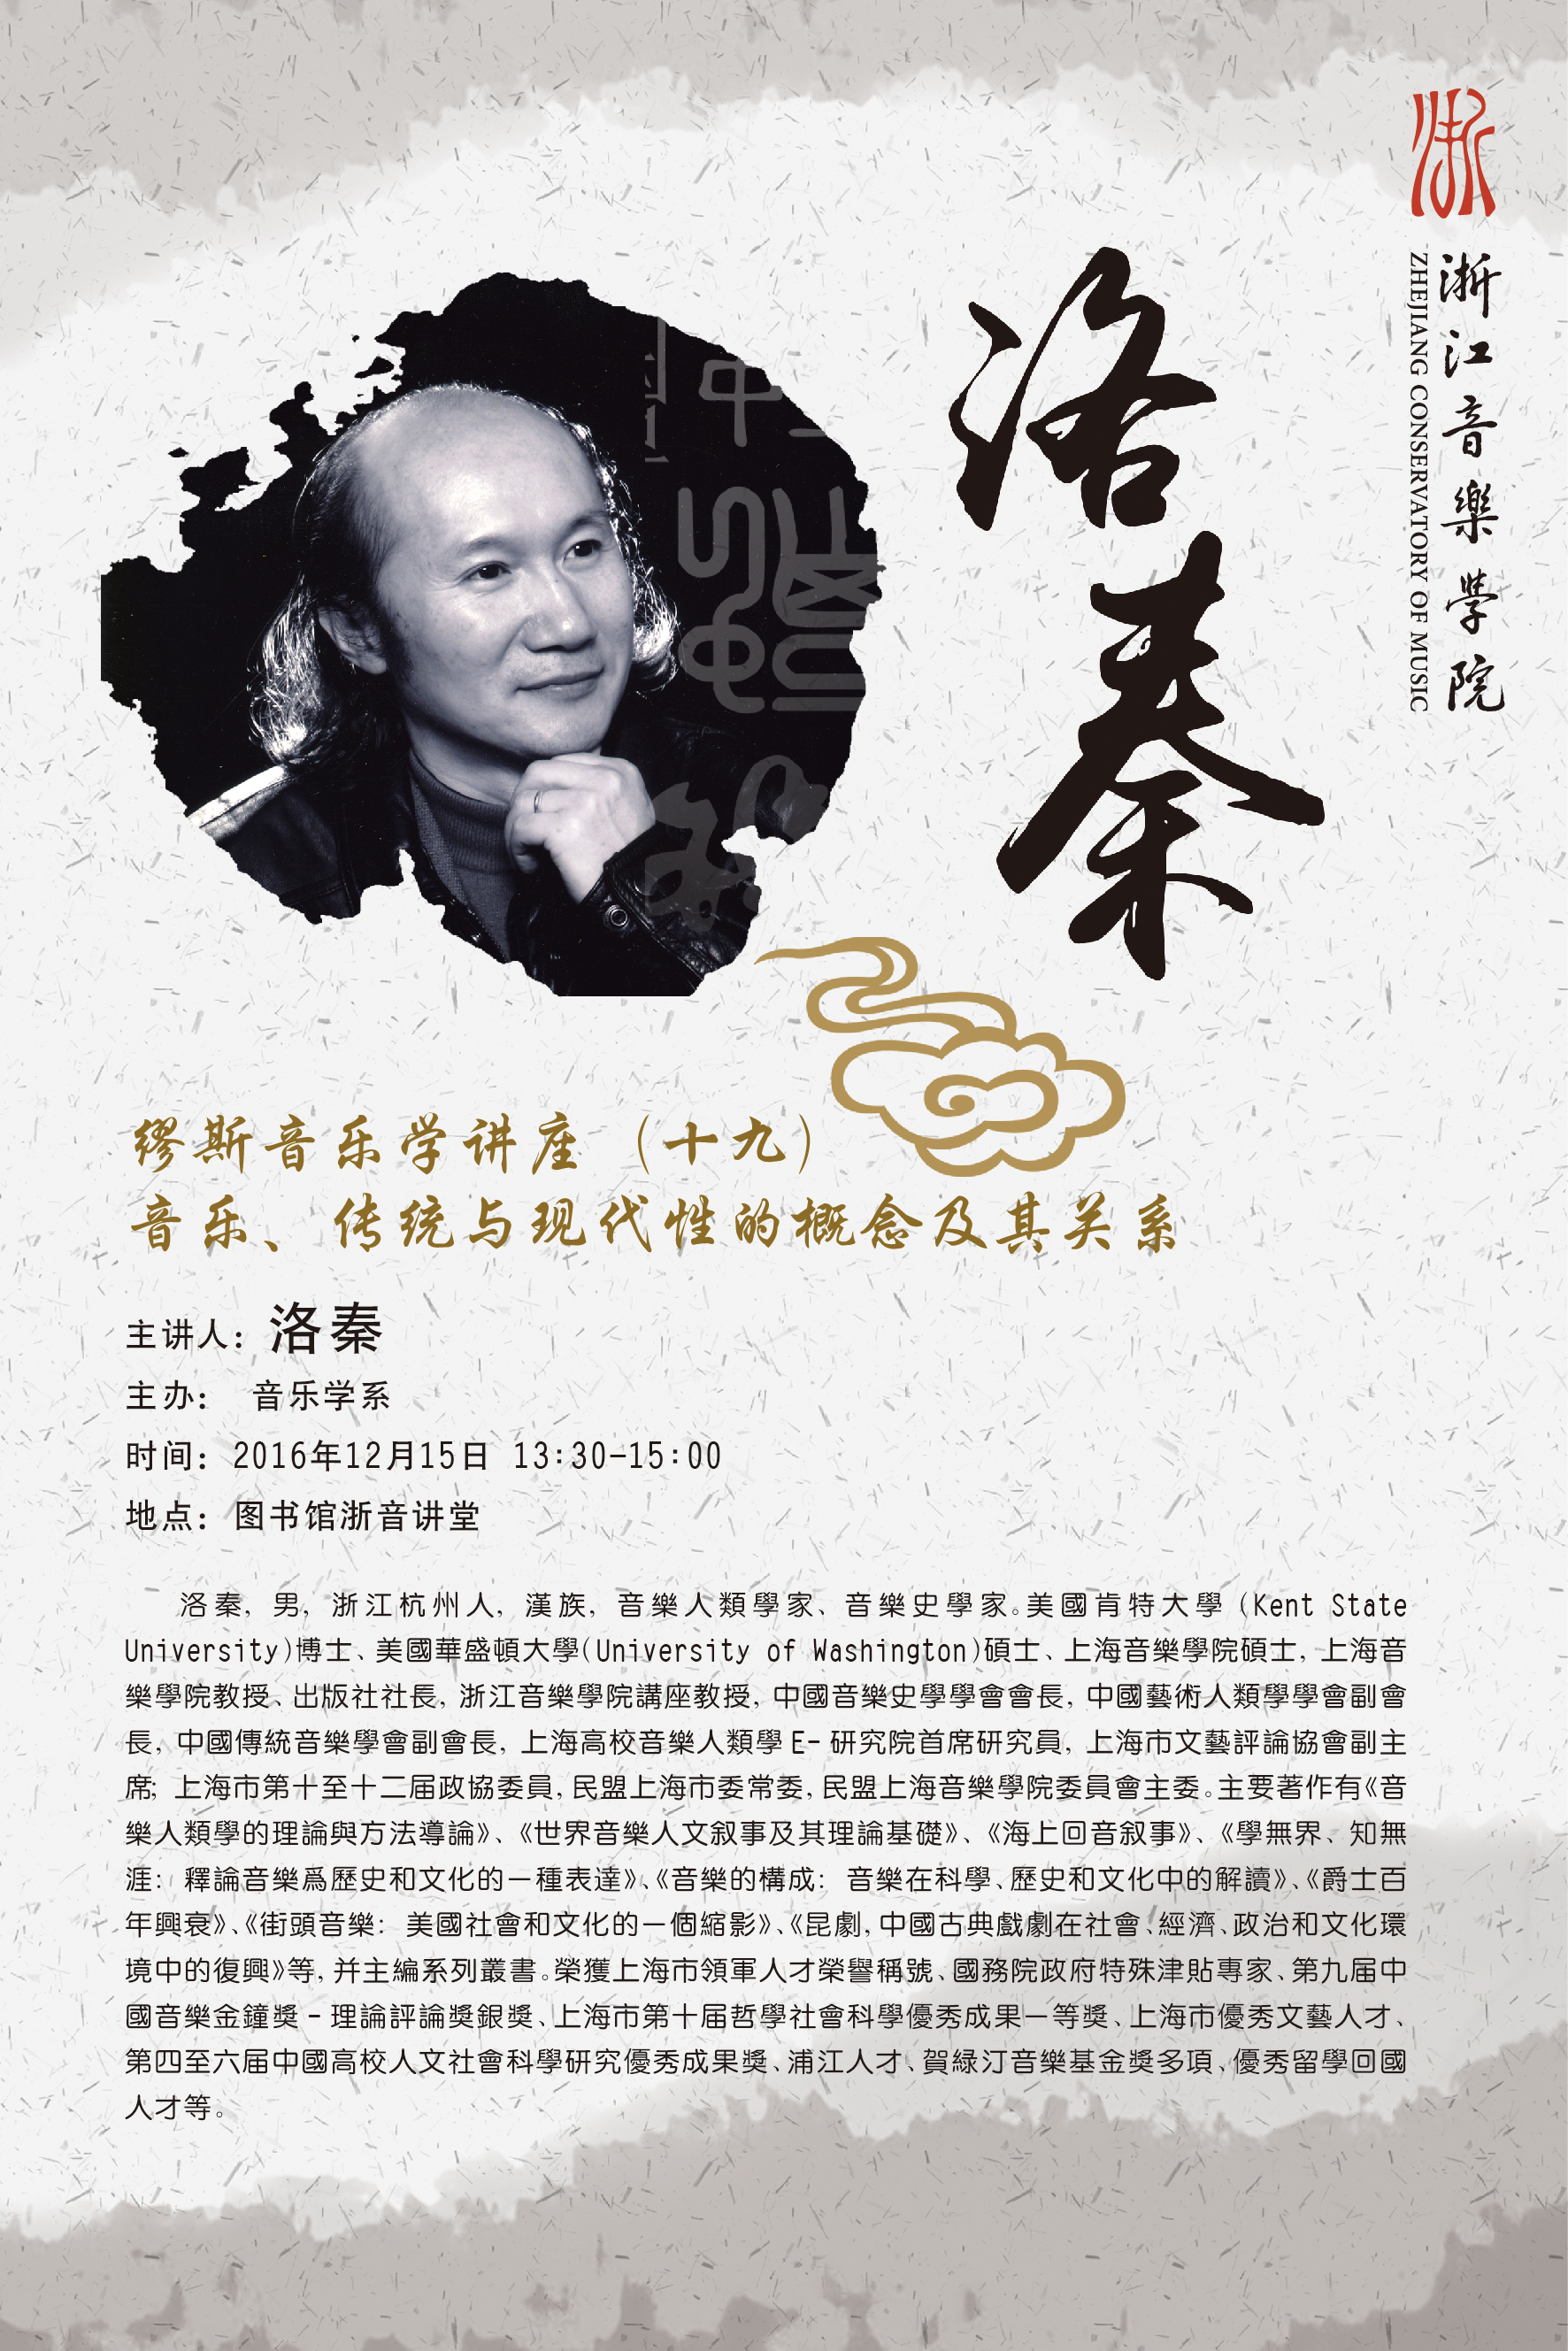 浙
浙江音樂學院
ZHEJIANG CONSERVATORY OF MUSIC
洛秦
缪斯音乐学讲座（十九）
音乐、传统与现代性的概念及其关系
主讲人：洛秦
主办： 音乐学系
时间：2016年12月15日 13:30-15:00
地点：图书馆浙音讲堂
洛秦，男，浙江杭州人，漢族，音樂人類學家、音樂史學家。美國肯特大學（Kent State
University)博士、美國華盛頓大學(University of Washington)碩士、上海音樂學院碩士，上海音
樂學院教授、出版社社長，浙江音樂學院講座教授，中國音樂史學學會會長，中國藝術人類學學會副會
長，中國傳統音樂學會副會長，上海高校音樂人類學 E- 研究院首席研究員，上海市文藝評論協會副主
席；上海市第十至十二届政協委員，民盟上海市委常委，民盟上海音樂學院委員會主委。主要著作有《音
樂人類學的理論與方法導論》、《世界音樂人文叙事及其理論基礎》、《海上回音叙事》、《學無界、知無
涯：釋論音樂爲歷史和文化的一種表達》、《音樂的構成：音樂在科學、歷史和文化中的解讀》、《爵士百
年興衰》、《街頭音樂：美國社會和文化的一個縮影》、《昆劇，中國古典戲劇在社會、經濟、政治和文化環
境中的復興》等，并主編系列叢書。榮獲上海市領軍人才榮譽稱號、國務院政府特殊津貼專家、第九届中
國音樂金鐘獎 - 理論評論獎銀獎、上海市第十届哲學社會科學優秀成果一等獎、上海市優秀文藝人才、
第四至六届中國高校人文社會科學研究優秀成果獎、浦江人才、賀緑汀音樂基金獎多項、優秀留學回國
人才等。